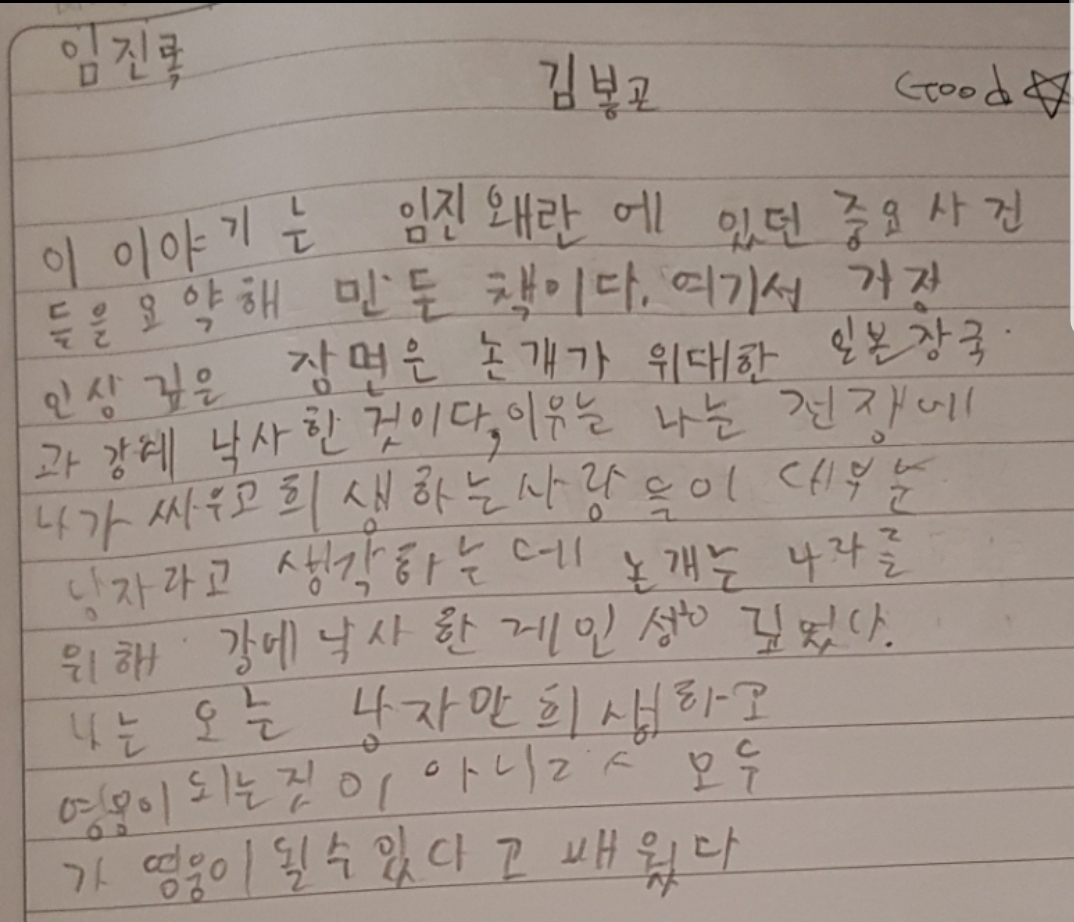 임진록
김봉곤 Good
이 이야기는 임진왜란에 있던 중요사건
들을 요약해 만든 책이다. 여기서 가장
인상 깊은 장면은 논개가 위대한 일본장국
과 강에 낙사한 것이다, 이유는 나는 전쟁에
나가 싸우고 희생하는 사람들이 대부분
남자라고 생각하는데 논개는 나라를
위해 강에 낙사 한 게 인상 깊었다.
나는 오는 남자만 희생하고
영웅이 되는 것이 아니라 모두
가 영웅이 될 수 있다고 배웠다